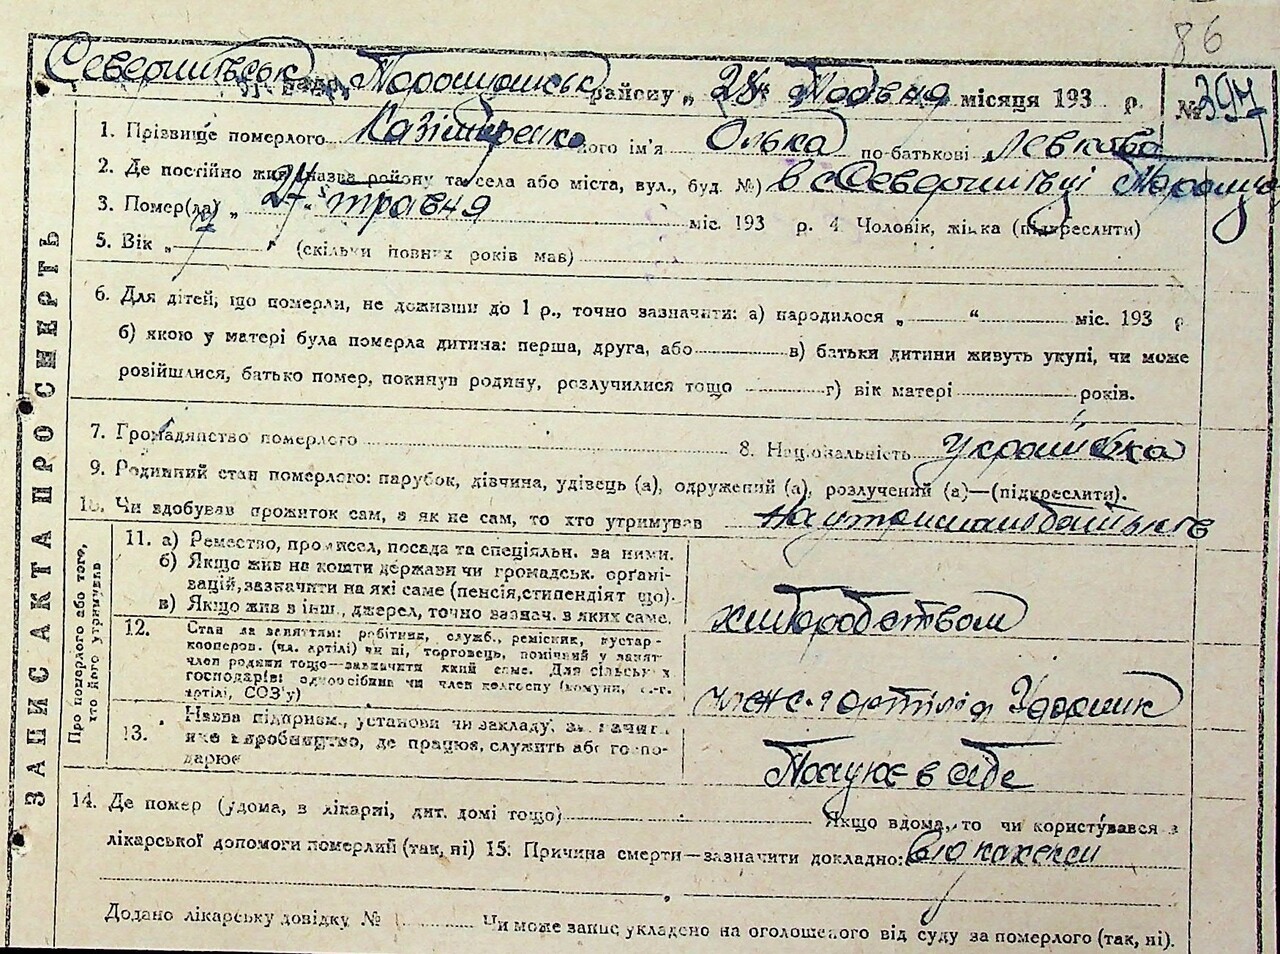 86
району „ 28 " Травня місяця 193 р. № 397
1. Прізвище померлого Казімиренко його ім'я Олька по-батькові Левкова
2. Де постійно жив (назва району та села або міста, вул., буд. №) в с
3. Помер(ла) „ 27 " травня міс. 193 р. 4. Чоловік, жінка (підкреслити)
5. Вік „ " (скільки повних років мав)
6. Для дітей, що померли, не доживши до 1 р., точно зазначити: а) народилося „ " міс. 193 р.
б) якою у матері була померла дитина: перша, друга, або в) батьки дитини живуть укупі, чи може
розійшлися, батько помер, покинув родину, розлучилися тощо г) вік матері років.
7. Громадянство померлого 8. Національність українка
9. Родинний стан померлого: парубок, дівчина, удівець (а), одружений (а), розлучений (а)—(підкреслити).
10. Чи здобував прожиток сам, а як не сам, то хто утримував
ЗАПИС АКТА ПРО СМЕРТЬ
Про померлого або того, хто його утримував
11. а) Ремество, промисел, посада та спеціяльн. за ними.
б) Якщо жив на кошти держави чи громадськ. органі-
зацій, зазначити на які саме (пенсія, стипендіят що).
в) Якщо жив в інш. джерел, точно зазнач. в яких саме.
хліборобством
12. Стан за заняттям: робітник, служб., ремісник, кустар-
кооперов. (чл. артілі) чи ні, торговець, помічний у занят
член родини тощо—зазначити який саме. Для сільських
господарів: одноосібник чи член колгоспу (комуни, с.-г.
артілі, СОЗ'у)
Ударник
13. Назва підприєм., установи чи закладу, зазначити
яке виробництво, де працює, служить або госпо-
дарює
Працює в себе
14. Де помер (удома, в лікарні, дит. домі тощо) Якщо вдома, то чи користувався з
лікарської допомоги померлий (так, ні) 15. Причина смерти—зазначити докладно:
Додано лікарську довідку № Чи може запис укладено на оголошеного від суду за померлого (так, ні).